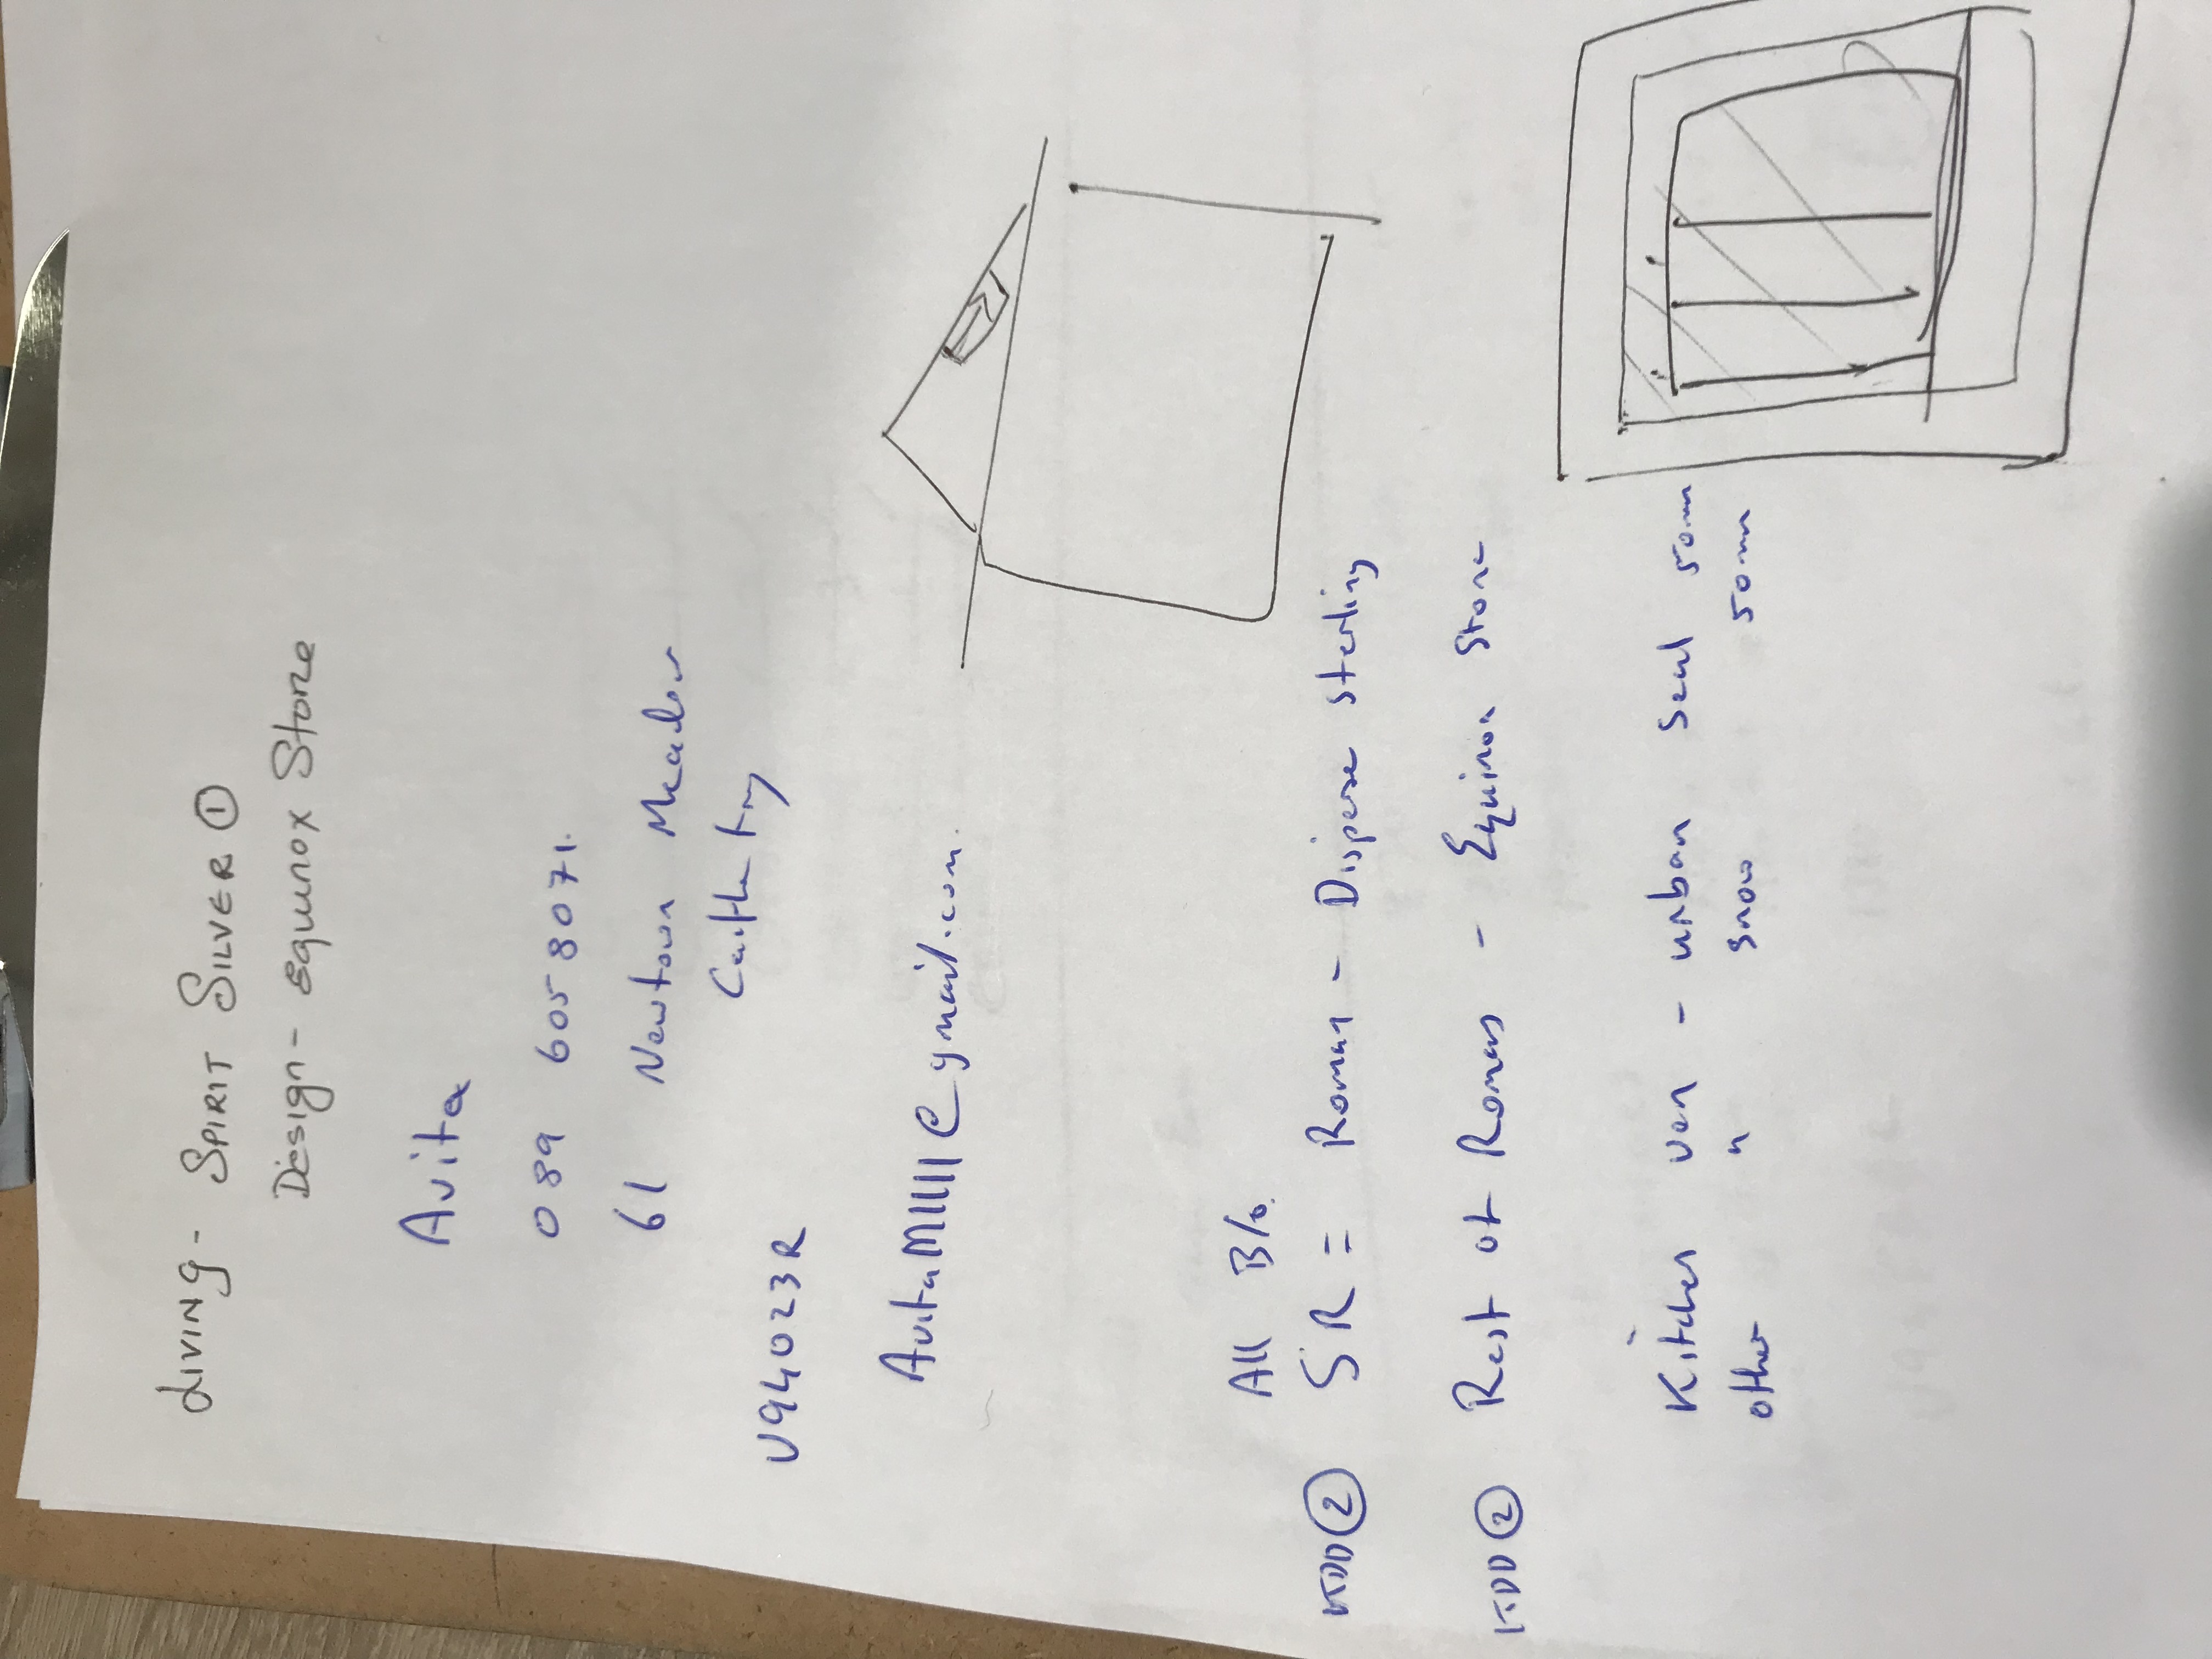 LIVING - SPIRIT SILVER ①
Design - Equinox Stone
Avita
089 6058071.
61 Newtown Meadow
V94023R
@gmail.com.
All B/o.
② SR = Roman - Disperse sterling
② Rest of Romans - Equinox Stone
Kitchen ven - urban Seal 50mm
other " snow 50mm